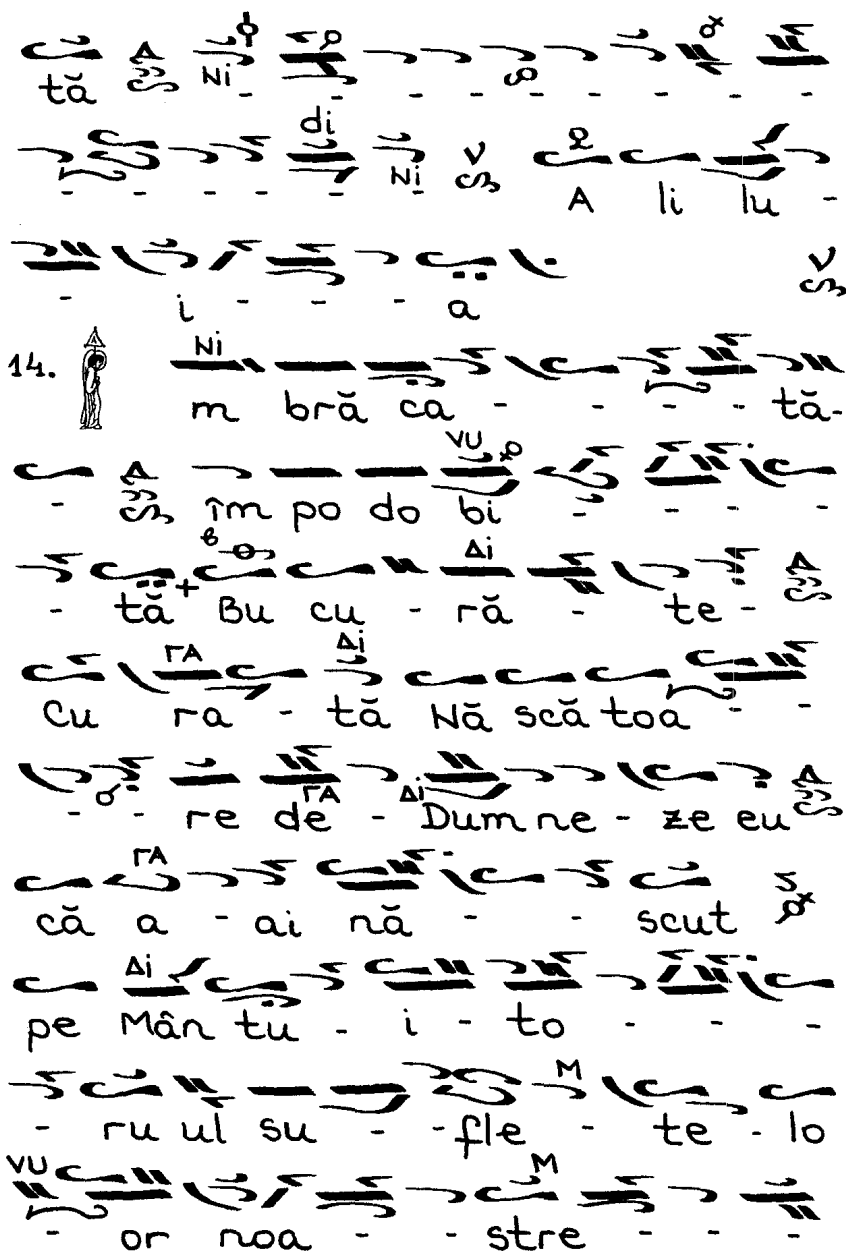 tă Ni - - - - - - - -
di
- - - - - Ni - A li lu -
- i - - - a
14. Ni
m bră ca - - - - tă-
VU
- îm po do bi - - - -
Δi
- tă + Bu cu - ră - te -
ΓΑ Δi
Cu ra - tă Nă scă toa - -
- - re de ΓΑ - Δi Dum ne - ze eu
ΓΑ
că a - ai nă - - scut
Δi
pe Mân tu - i - to - - -
M
- ru ul su - - fle - te - lo
VU M
- or noa - - stre - - -